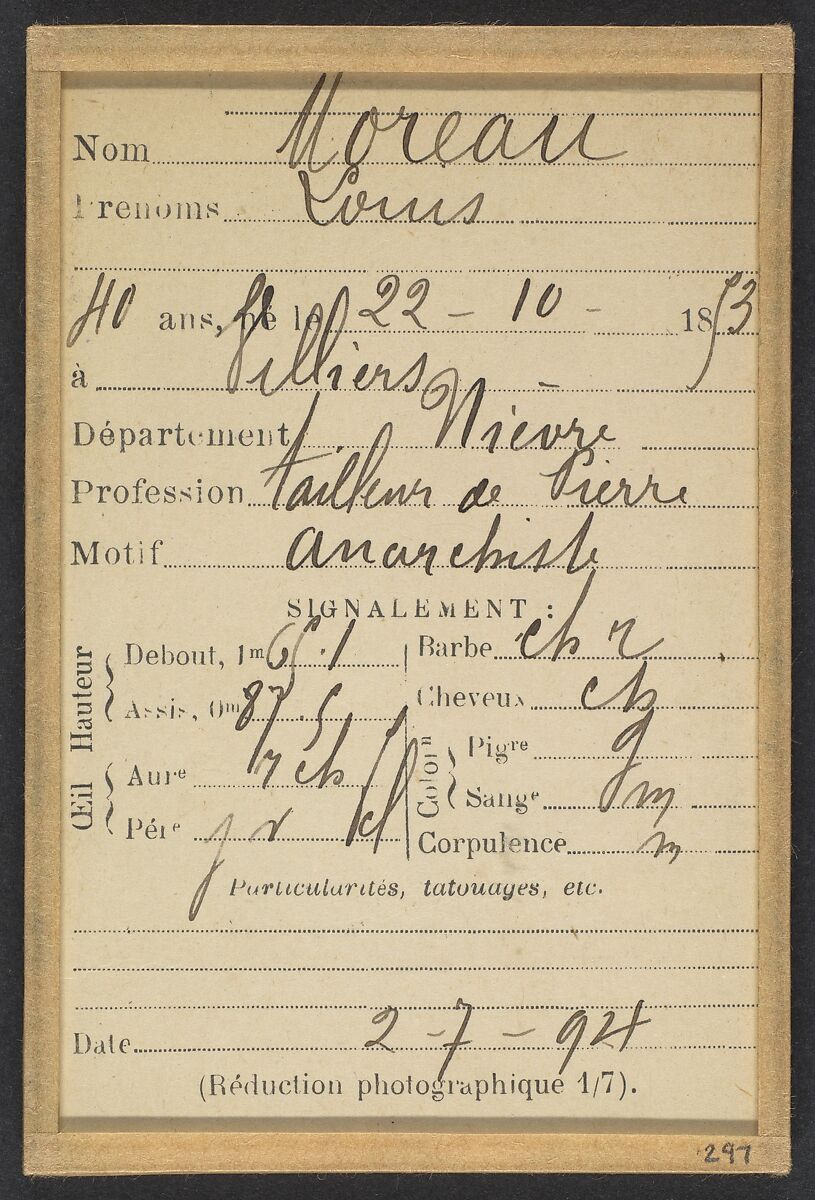 Nom Moreau
Prénoms Louis
40 ans, né le 22 - 10 - 1853
à Villiers
Département Nièvre
Profession tailleur de Pierre
Motif anarchiste
SIGNALEMENT :
Hauteur
Debout, 1m 65.1
Assis, 0m 87.5
Œil
Aure r ch
Pére j v cl
Barbe ch r
Cheveux ch
Colorn
Pigre g
Sange m
Corpulence m
Particularités, tatouages, etc.
Date 2 - 7 - 94
(Réduction photographique 1/7).
297